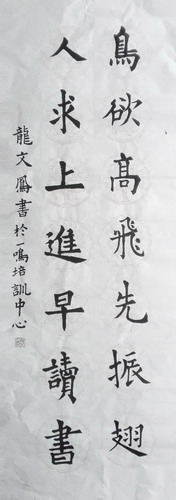 鳥欲高飛先振翅
人求上進早讀書
龍文鳳書於一鳴培訓中心